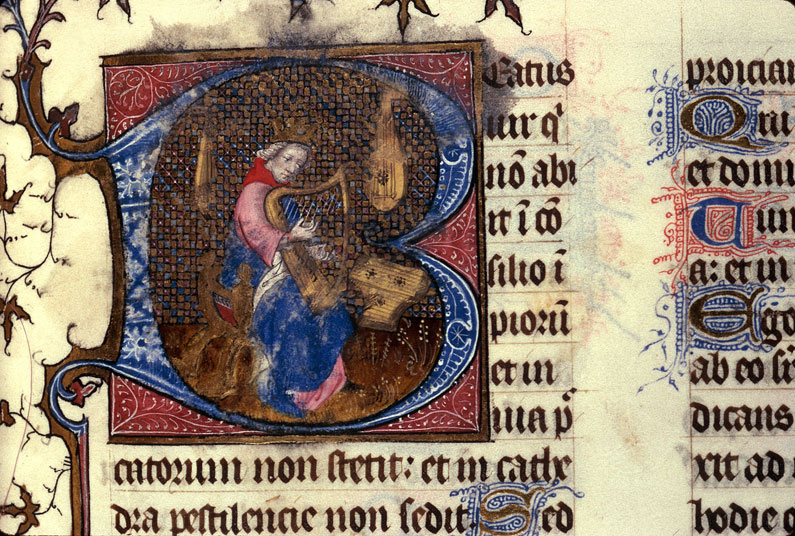 BEatus
uir qͥ
nō abi
it ī cō
silio ī
piorū
et in
uia p̄
catorum non stetit: et in cathe
dra pestilencie non sedit. Sed
proicia
Qui
et domi
Tun
a: et in
Ego
ab eo
dicans
xit ad
hodie